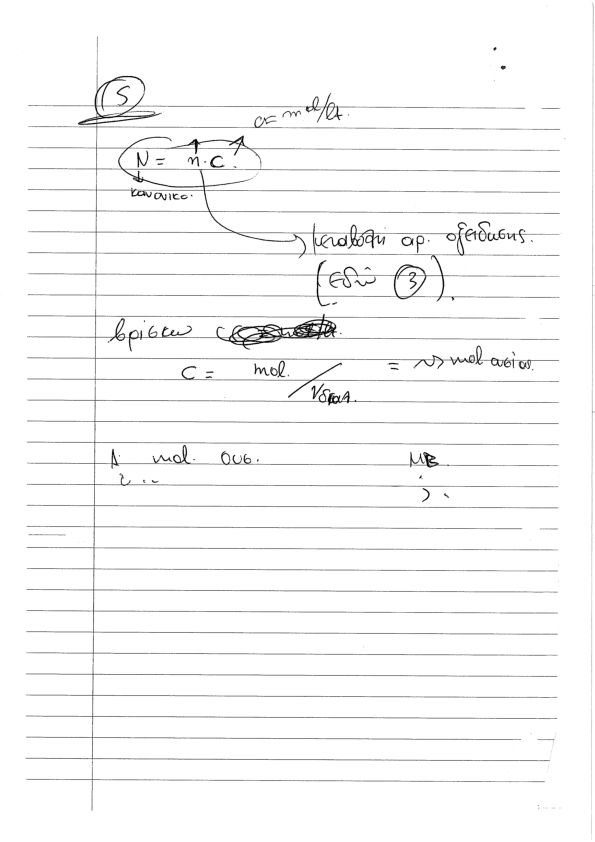 5
C = mol/lt.
N = n·C.
κανονικο.
μεταβολή αρ. οξείδωσης.
(εδώ 3).
βρίσκω C
C = mol / Vδιαλ. = mol ουσίας.
1 mol. ουσ. MB.
; .. ;.